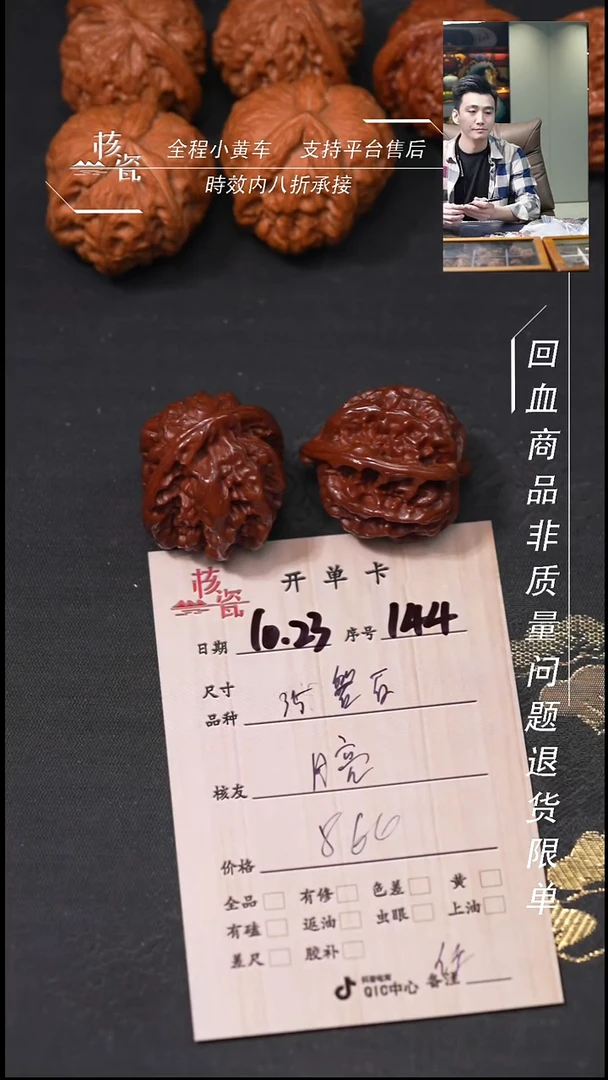 核瓷
全程小黄车 支持平台售后
時效内八折承接
回血商品非质量问题退货限单
核瓷
开单卡
日期 10.23 序号 144
尺寸
品种 35
核友 月亮
价格 866
全品 有修 色差 黄
有磕 返油 虫眼 上油
差尺 胶补
QIC中心 备注